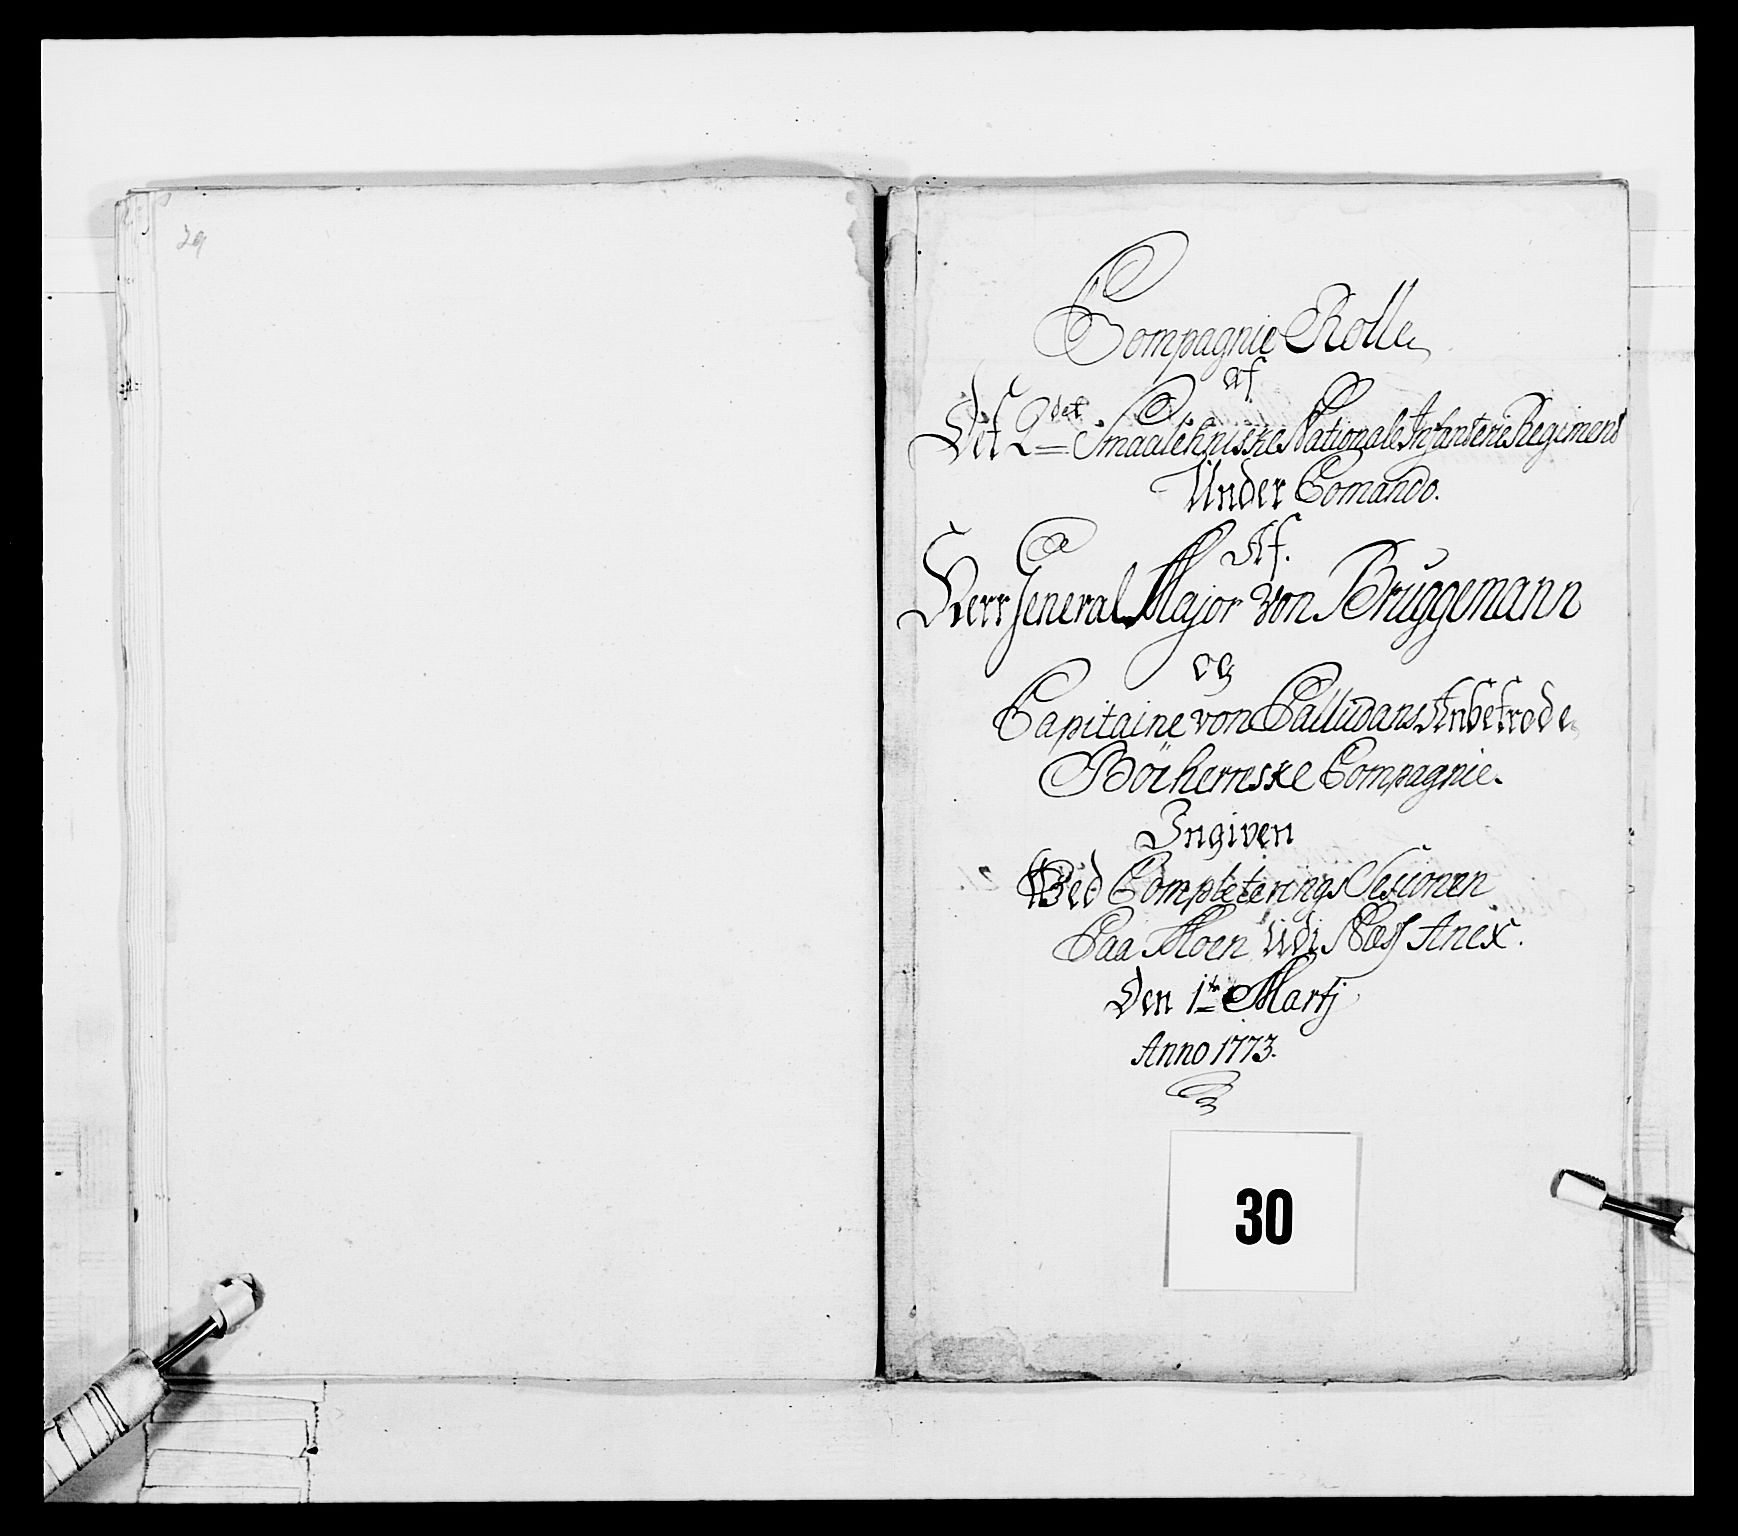 29
Compagnie Rolle
af
Det 2det Smaalehnske Nationale Infanterie Regiment
Under Comando.
Af.
Herr General Major von Brüggemann
og
Capitaine von Palludans Anbetrode
Compagnie.
Ingiven
Ved Completerings Sesionen
Paa Moen Udi Næss Anex.
Den 1te Martj
Anno 1773.
30